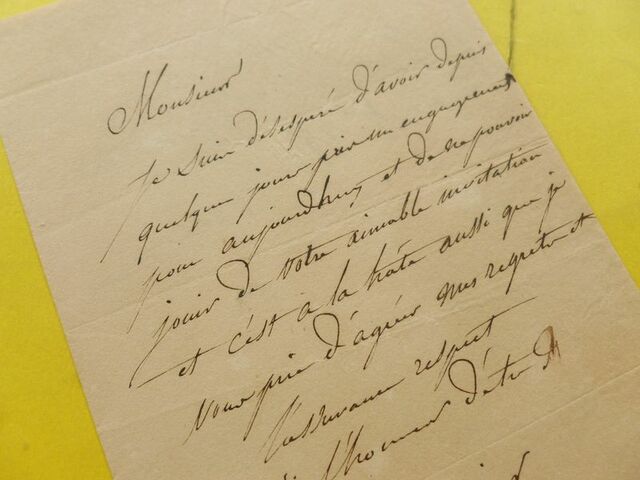 Monsieur
Je suis désespéré d'avoir depuis
quelque jours pris un engagement
pour aujourdhuy et de ne pouvoir
jouir de votre aimable invitation
et c'est à la hâte aussi que je
vous prie d'agréer mes regrets et
l'assurance respect
l'honneur d'etre